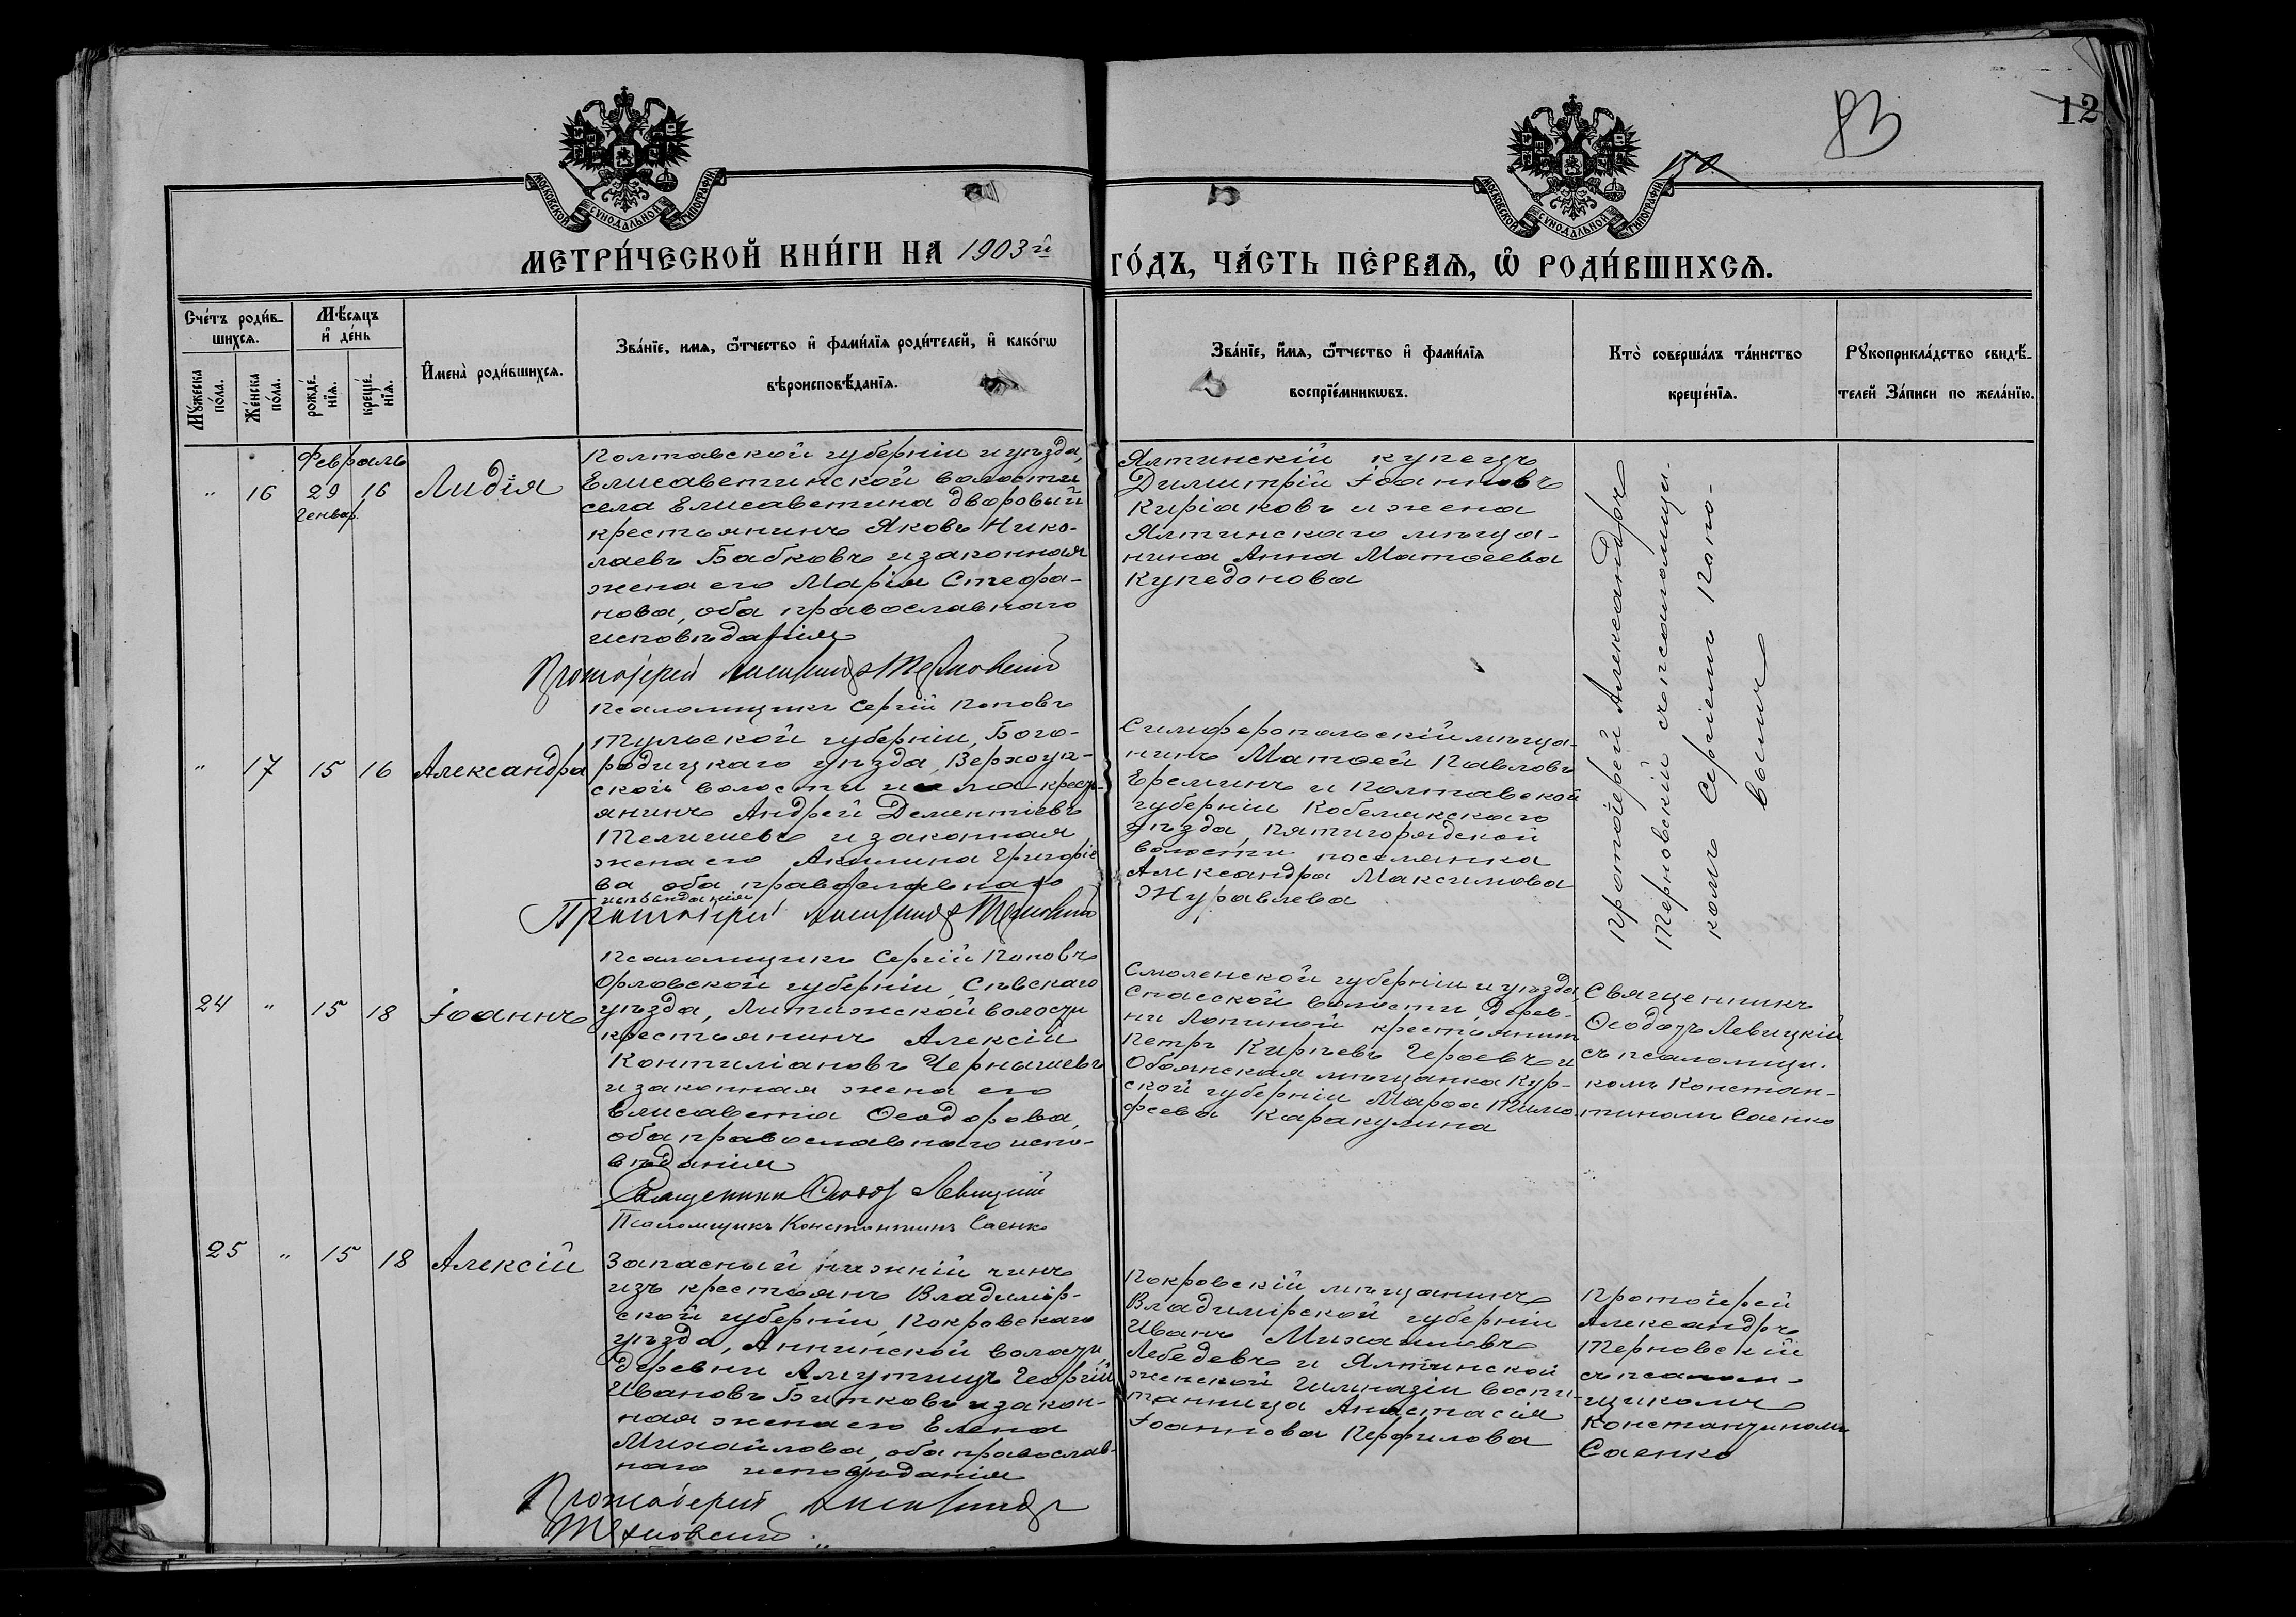 83
12
150
МОСКОВСКОЙ СУНОДАЛЬНОЙ ТИПОГРАФІИ
МОСКОВСКОЙ СУНОДАЛЬНОЙ ТИПОГРАФІИ
МЕТРИ́ЧЕСКОЙ КНИ́ГИ НА 1903й ГО́ДЪ, ЧА́СТЬ ПЕ́РВАѦ, Ѡ РОДИ́ВШИХСѦ.
Сче́тъ роди́в-
шихсѧ.
Мѹжеска
по́ла.
Же́нска
по́ла.
Мѣ́сѧцъ
и҆ де́нь
рожде́-
нїѧ.
креще́-
нїѧ.
И҆мена̀ роди́вшихсѧ.
Зва́нїе, имѧ, ѻ҆́тчество и҆ фами́лїѧ роди́телей, и҆ како́гѡ
вѣроисповѣ́данїѧ.
Зва́нїе, и҆́мѧ, ѻ҆́тчество и҆ фами́лїѧ
воспрїе́мникѡвъ.
Кто̀ соверша́лъ та́инство
креще́нїѧ.
Рѹкоприкла́дство свидѣ́-
телей За́писи по жела́нїю.
Февраль
" 16 29 16 Лидія
Генвар.
Полтавской губерніи и уѣзда,
Елисаветинской волости
села Елисаветина дворовый
крестьянинъ Яковъ Нико-
лаевъ Бабковъ и законная
жена его Марія Стефа-
нова, оба православнаго
исповѣданія
Протоіерей Александръ Терновский
Псаломщикъ Сергій Поповъ
Ялтинскій купецъ
Димитрій Іоанновъ
Киріаковъ и жена
Ялтинскаго мѣща-
нина Анна Матѳеева
Купедонова
Протоіерей Александръ
Терновскій съ псаломщи-
комъ Сергіемъ Попо-
вымъ
" 17 15 16 Александра
Тульской губерніи, Бого-
родицкаго уѣзда,
ской волости и села крест-
янинъ Андрей Дементіевъ
Телишевъ и законная
жена его Акилина Григоріе
ва оба православнаго
исповѣданія
Протоіерей Александръ Терновский
Псаломщикъ Сергій Поповъ
Симферопольскій мѣща-
нинъ Матѳей Павловъ
Ереминъ и Полтавской
губерніи Кобелякскаго
уѣзда,
волости поселянка
Александра Максимова
Журавлева
24 " 15 18 Іоаннъ
Орловской губерніи, Сѣвскаго
уѣзда, Литижской волости
крестьянинъ Алексій
Контиліановъ Чернышевъ
и законная жена его
Елисавета Ѳеодорова,
оба православнаго испо-
вѣданія
Священникъ Ѳеодоръ Левицкій
Псаломщикъ Константинъ Саенко
Смоленской губерніи и уѣзда,
Спасской волости, дерев-
ни Лопиной крестьянинъ
Петръ Кирѣевъ и
Обоянская мѣщанка Кур-
ской губерніи Марѳа Тимо-
феева Каракулина
Священникъ
Ѳеодоръ Левицкій
съ псаломщи-
комъ Констан-
тиномъ Саенко
25 " 15 18 Алексій
Запасный нижній чинъ
изъ крестьянъ Владимір-
ской губерніи, Покровскаго
уѣзда, Аннинской волости,
деревни Георгій
Ивановъ Битковъ и закон-
ная жена его Елена
Михайлова, оба православ-
наго исповѣданія
Протоіерей Александръ
Терновский
Покровскій мѣщанинъ
Владимірской губерніи
Иванъ Михаиловъ
Лебедевъ и Ялтинской
женской гимназіи воспи-
танница Анастасія
Іоаннова Перфилова
Протоіерей
Александръ
Терновскій
съ псалом-
щикомъ
Константиномъ
Саенко